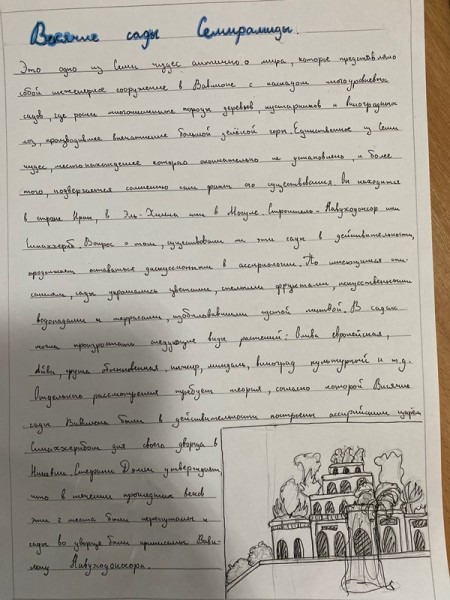 Висячие сады Семирамиды.
Это одно из Семи чудес античного мира, которое представляло
собой инженерное сооружение в Вавилоне с каскадом многоуровневых
садов, где росли многочисленные породы деревьев, кустарников и виноградных
лоз, производившее впечатление большой зелёной горы. Единственное из семи
чудес, местонахождение которого окончательно не установлено и более
того, подвергается сомнению сам факт его существования. Он находится
в стране Ирак, в Эль-Хилла или в Мосуле. Строитель - Навуходоносор или
Синаххериб. Вопрос о том, существовали ли эти сады в действительности,
продолжает оставаться дискуссионным в ассириологии. По имеющимся опи-
саниям, сады украшались цветами, спелыми фруктами, искусственными
водопадами и террасами, изобиловавшими густой листвой. В садах
могли произрастать следующие виды растений: Олива европейская,
Айва, груша обыкновенная, инжир, миндаль, виноград культурный и т.д.
Отдельного рассмотрения требует теория, согласно которой Висячие
сады Вавилона были в действительности построены ассирийским царём
Синаххерибом для своего дворца в
Ниневии. Стефани Далли утверждает,
что в течении прошедших веков
эти 2 места были перепутаны и
сады во дворце были приписаны Вави-
лону Навуходоносора.